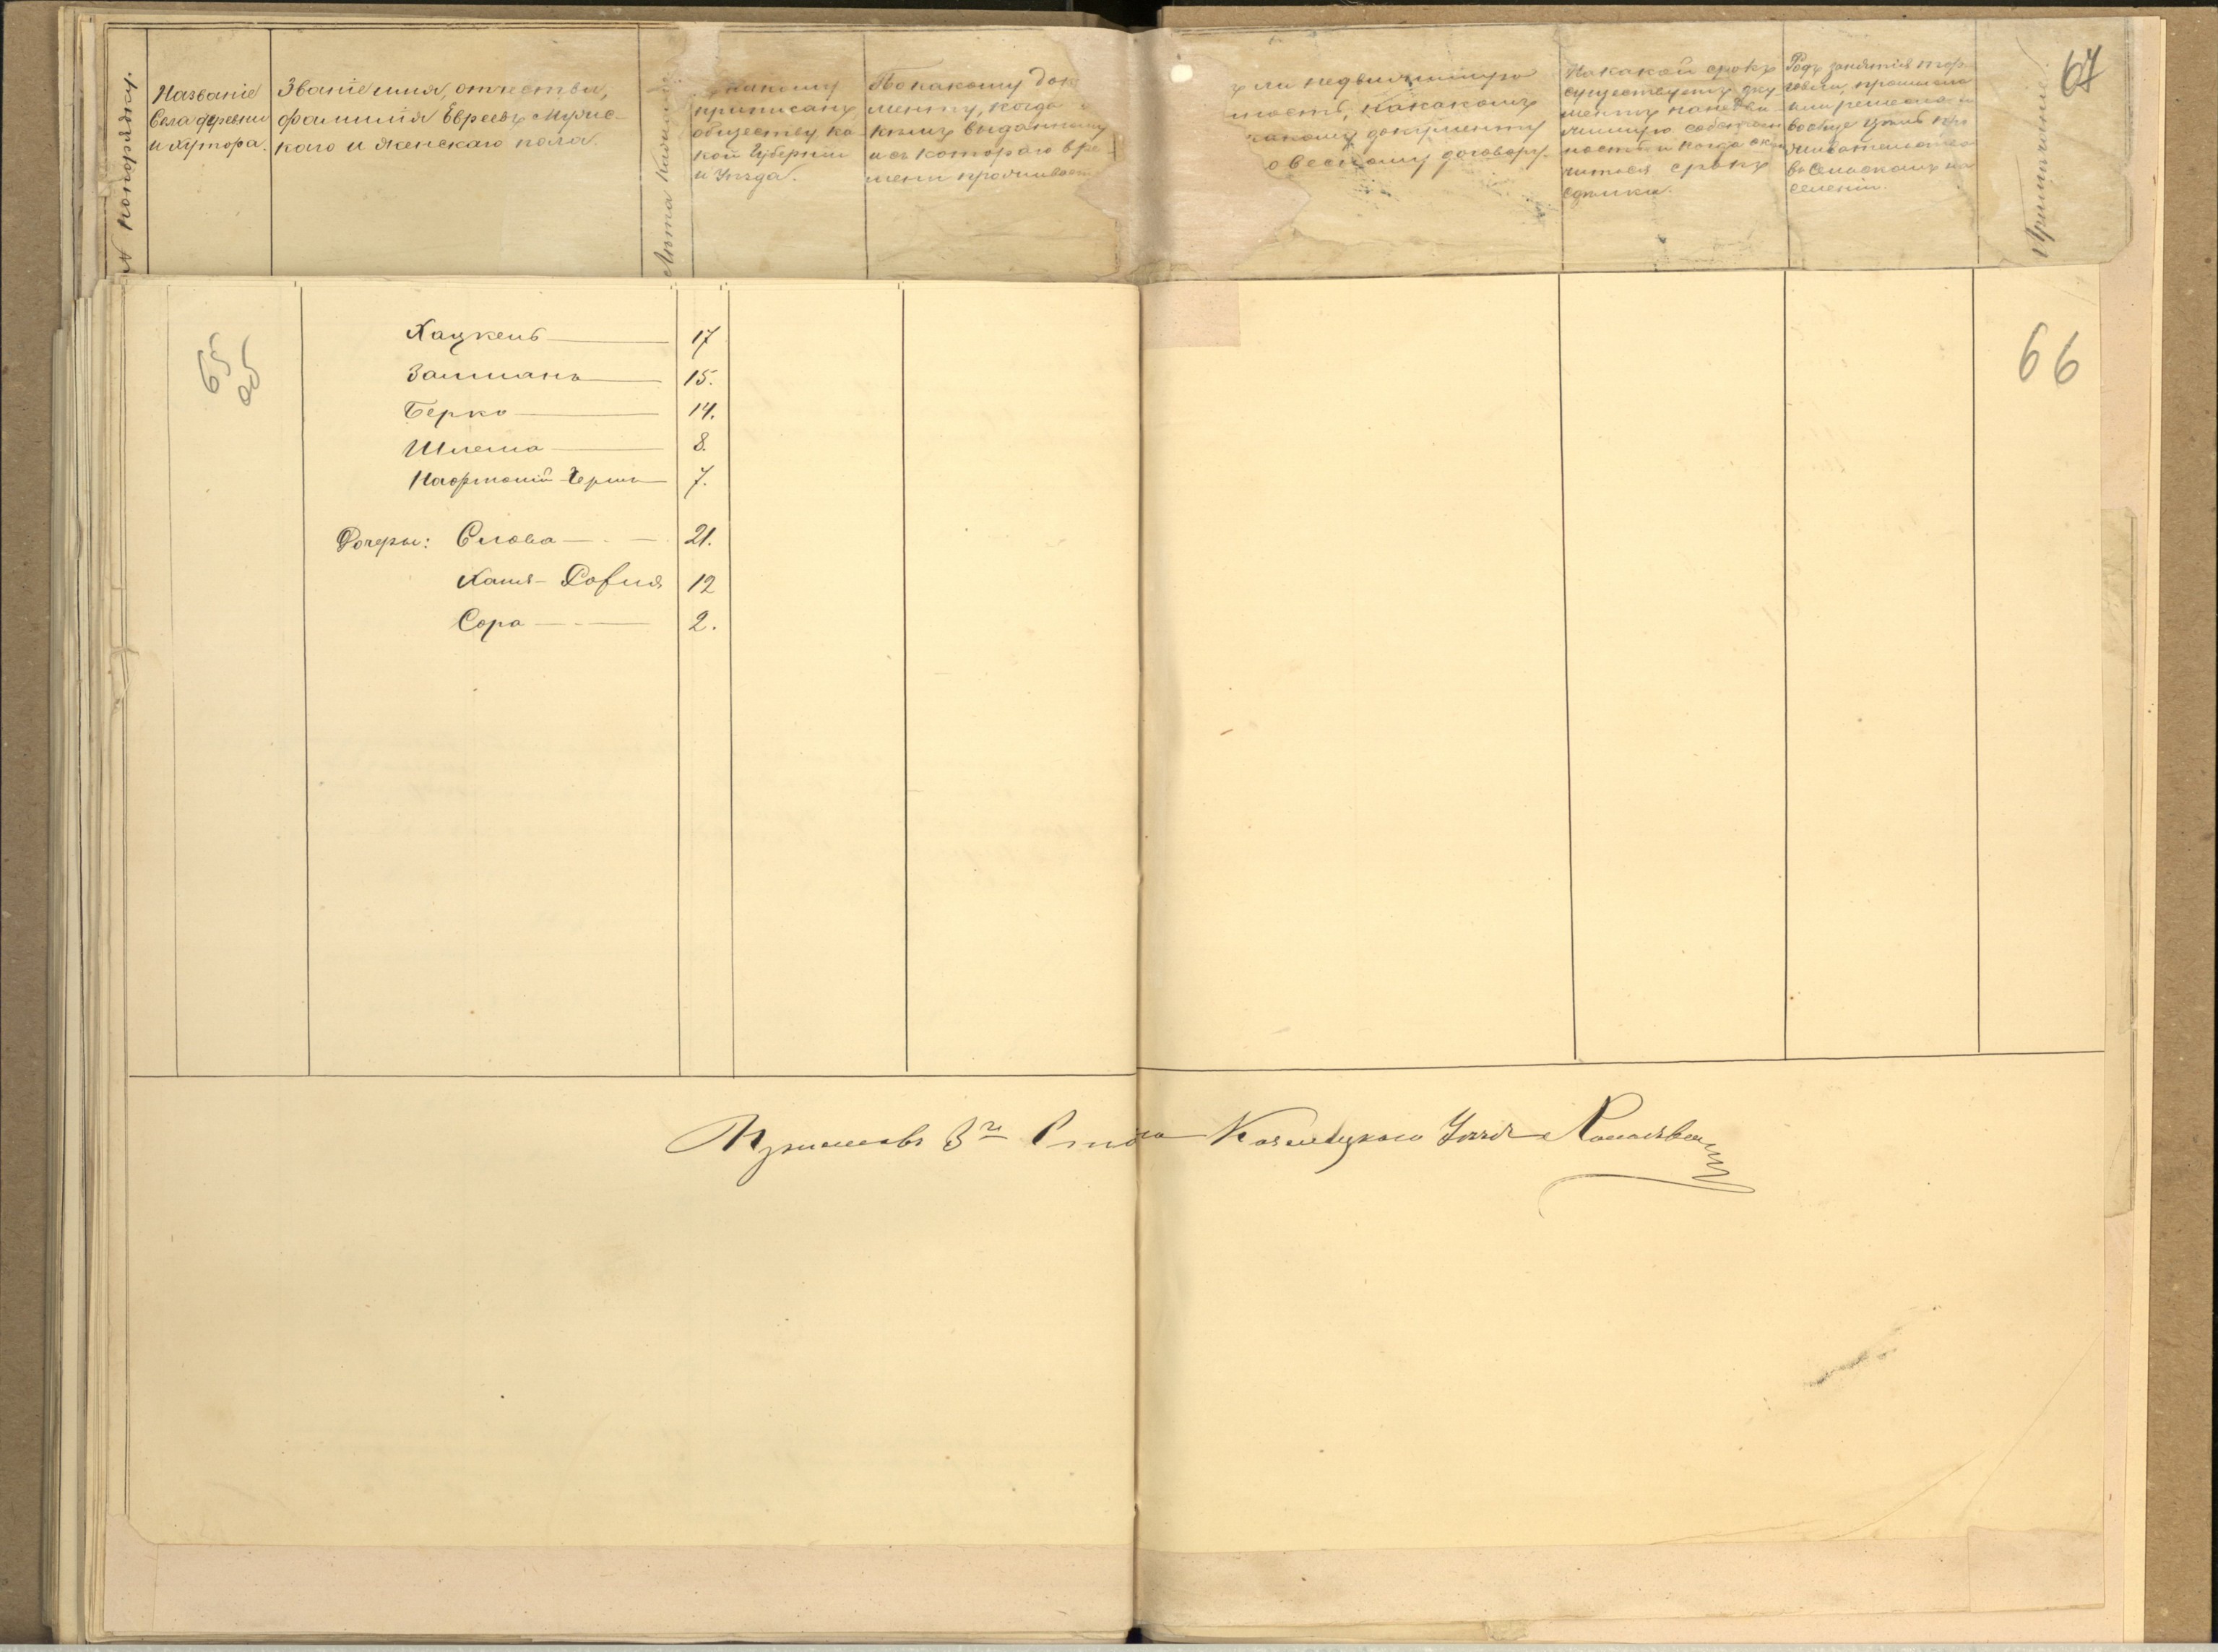 № по порядку.
Названіе
Села деревни
и хутора.
Званіе имя, отчество,
фамилія Евреевъ Мужс-
каго и женскаго пола.
Лѣта
какому
приписанъ
обществу ка-
кой Губерніи
и Уѣзда.
По какому док
менту, когда
кѣмъ выданному
и съ котораго вре-
мени проживаетъ
ли недвижимую
ность, на какомъ
документу
словесному договору.
На какой срокъ
существуетъ доку-
ментъ на недви-
жимую собствен
ность и когда окон
чится срокъ
Родъ занятія тор-
говли, промысла
или ремесла и
вообще цѣль про
живательства
въ Сельскомъ на
селеніи.
Примѣчаніе.
67
65
об
66
Хацкель 17
Залманъ 15.
Берко 14.
Шлема 8.
Нафтолій-Гершъ 7.
Дочеры: Слова 21.
Хая-Dofия 12
Сора 2.
Приставъ 3го Стана Козелецкаго Уѣзда